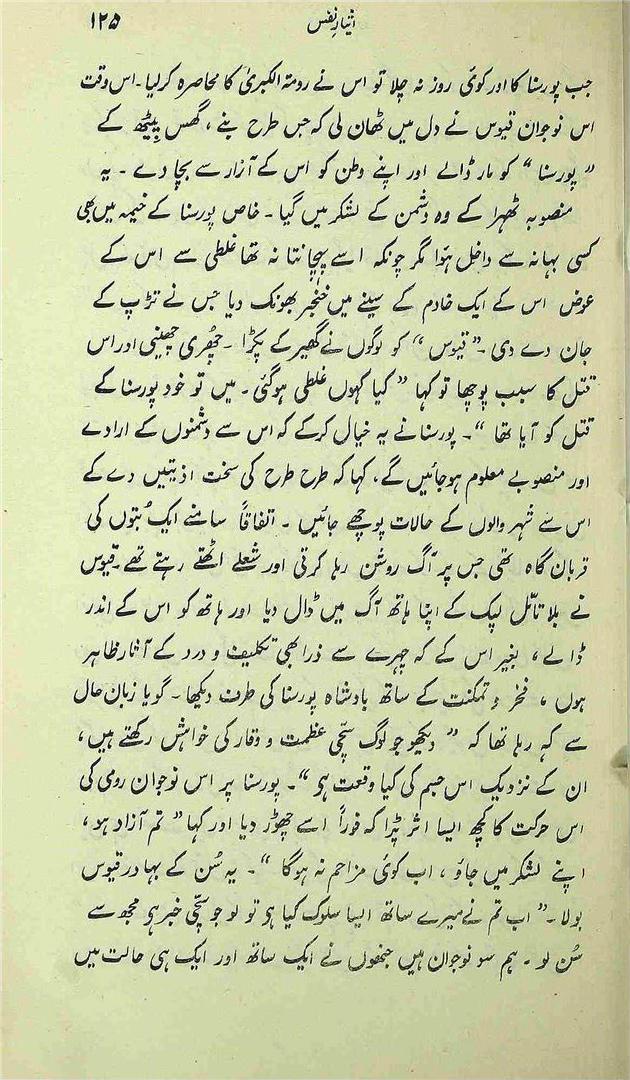 ایثارِ نفس ۱۲۵
جب پورسنا کا اور کوئی روز نہ چلا تو اس نے رومۃ الکبریٰ کا محاصرہ کر لیا۔ اس وقت
اس نوجوان قیوس نے دل میں ٹھان لی کہ جس طرح بنے ، گھس پیٹھ کے
” پورسنا “ کو مار ڈالے اور اپنے وطن کو اس کے آزار سے بچا دے ۔ یہ
منصوبہ ٹھہرا کے وہ دشمن کے لشکر میں گیا ۔ خاص پورسنا کے خیمہ میں بھی
کسی بہانہ سے داخل ہوٴا مگر چونکہ اسے پہچانتا نہ تھا غلطی سے اس کے
عوض اس کے ایک خادم کے سینے میں خنجر بھونک دیا جس نے تڑپ کے
جان دے دی ۔ ” قیوس “ کو لوگوں نے گھیر کے پکڑا ۔ چھُری چھینی اور اس
قتل کا سبب پوچھا تو کہا ” کیا کہوں غلطی ہو گئی ۔ میں تو خود پورسنا کے
قتل کو آیا تھا “۔ پورسنا نے یہ خیال کر کے کہ اس سے دشمنوں کے ارادے
اور منصوبے معلوم ہو جائیں گے، کہا کہ طرح طرح کی سخت اذیتیں دے کے
اس سے شہر والوں کے حالات پوچھے جائیں ۔ اتفاقاً سامنے ایک بُتوں کی
قربان گاہ تھی جس پر آگ روشن رہا کرتی اور شعلے اٹھتے رہتے تھے ۔ قیوس
نے بلا تامّل لپک کے اپنا ہاتھ آگ میں ڈال دیا اور ہاتھ کو اس کے اندر
ڈالے ، بغیر اس کے کہ چہرے سے ذرا بھی تکلیف و درد کے آثار ظاہر
ہوں ، فخر و تمکنت کے ساتھ بادشاہ پورسنا کی طرف دیکھا ۔ گویا زبان حال
سے کہ رہا تھا کہ ” دیکھو جو لوگ سچّی عظمت و وقار کی خواہش رکھتے ہیں ،
ان کے نزدیک اس جسم کی کیا وقعت ہی “ ۔ پورسنا پر اس نوجوان رومی کی
اس حرکت کا کچھ ایسا اثر پڑا کہ فوراً اسے چھوڑ دیا اور کہا ” تم آزاد ہو ،
اپنے لشکر میں جاؤ ، اب کوئی مزاحم نہ ہوگا “ ۔ یہ سُن کے بہادر قیوس
بولا ۔ ” اب تم نے میرے ساتھ ایسا سلوک کیا ہی تو لو جو سچّی خبر ہی مجھ سے
سُن لو ۔ ہم سو نوجوان ہیں جنھوں نے ایک ساتھ اور ایک ہی حالت میں